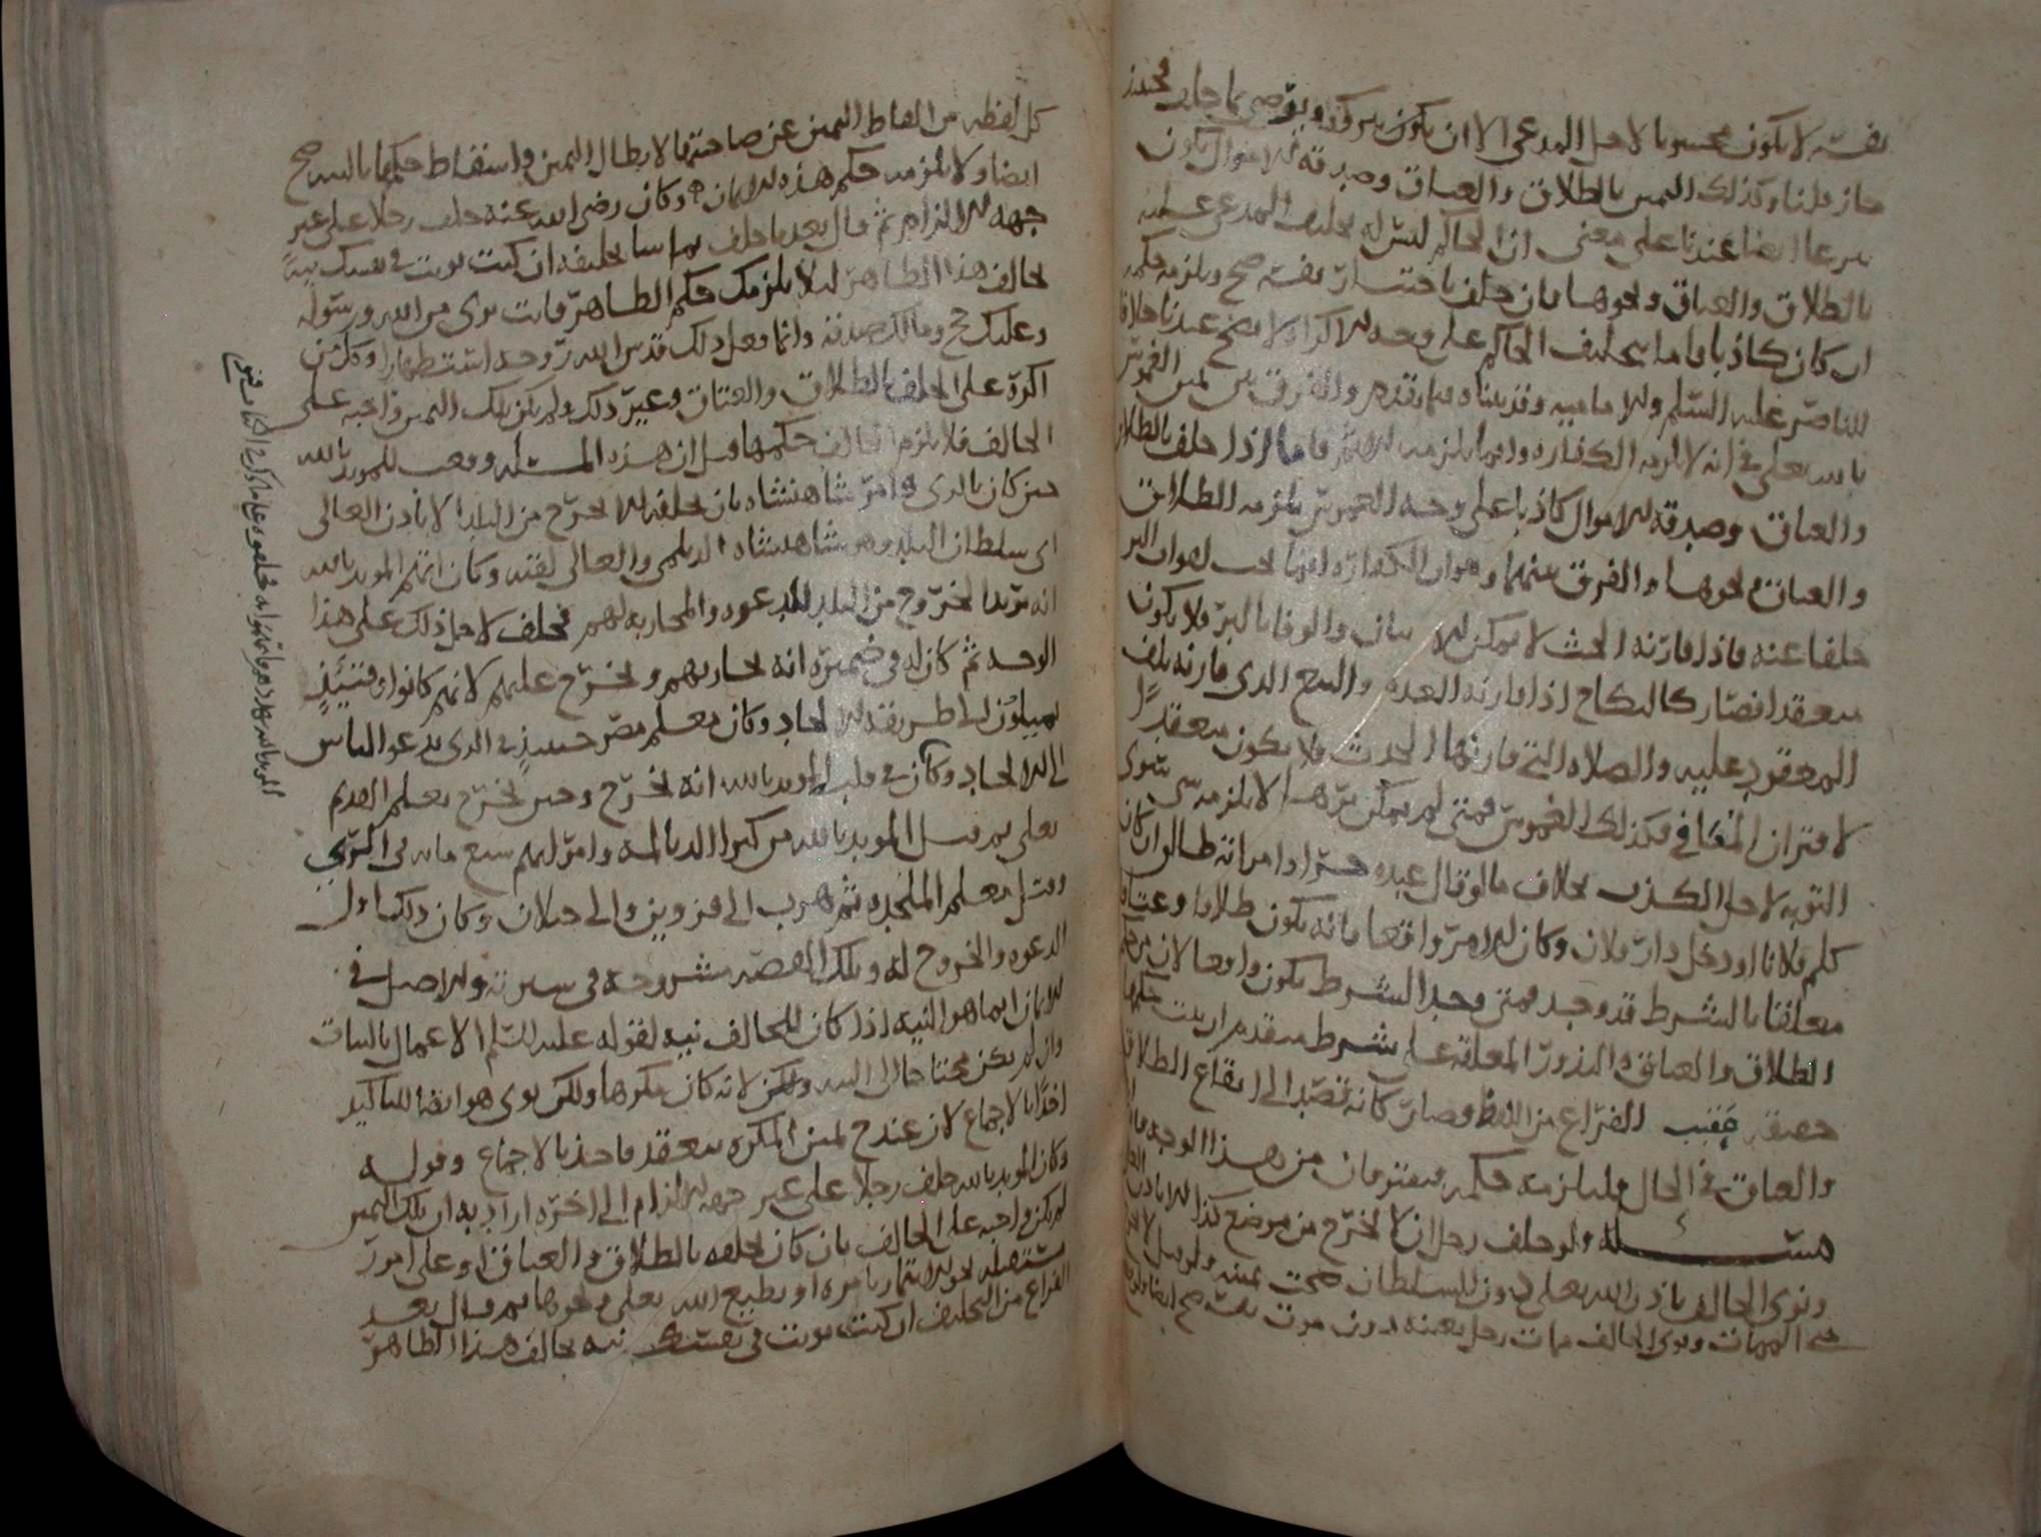 نفسه لا يكون محبوسا لاجل المدعي الا ان يكون
جاز قلنا وكذلك اليمين بالطلاق والعتاق وصدقة الاموال يكون
شرعا ايضا عندنا على معنى ان الحاكم ليس له تحليف المدعى عليه
بالطلاق والعتاق ونحوها فان حلف باختيار نفسه صح ويلزمه حكمه
ان كان كاذبا فاما بتحليف الحاكم على وجه الاكراه لا يصح عندنا خلافا
للناصر عليه السلم والامامية وقد بيناه فيما تقدم والفرق بين يمين الغموس
بالله تعالى في انه لا يلزمه الكفارة وانما يلزمه الاثم فاما اذا حلف بالطلاق
والعتاق وصدقة الاموال كاذبا على وجه الغموس يلزمه الطلاق
والعتاق ونحوها والفرق بينهما وهو ان الكفارة انما تجب لفوات البر
خلفا عنه فاذا قارنه الحنث لا يمكن الاتيان والوفا بالبر فلا يكون
منعقدا فصار كالنكاح اذا قارنه العدة والبيع الذي قارنه تلف
المعقود عليه والصلاه التي قارنها الحدث فلا يكون منعقدا
لاقتران المنافي فكذلك الغموس فمتى لم يمكن برها لا يلزمه شي سوى
التوبه لاجل الكذب بخلاف ما لو قال عبده حر او امراته طالق ان كان
كلم فلانا او دخل دار فلان وكان الامر واقعا فانه يكون طلاقا وعتاقا
معلقا بالشرط قد وجد فمتى وجد الشرط يكون واقعا لان من حكم
الطلاق والعتاق والنذور المعلقه على شرط متقدم ان يثبت حكمها
حقيقة عقيب الفراغ من اللفظ وصار كانه قصد الى ايقاع الطلاق
والعتاق في الحال فيلزمه حكمه فيفترقان من هذا الوجه
مسئلة ولو حلف رجل ان لا يخرج من موضع كذا الا باذن
ونوى الحالف باذن الله تعالى دون السلطان صحت يمينه
في المهمات ونوى الحالف مهمات رجل بعينه دون نفسه صح ايضا
كل لفظه من الفاظ اليمين عن صاحبتها لابطال اليمين واسقاط حكمها بالنيه صح
ايضا ولا يلزمه حكم هذه الايمان وكان رضي الله عنه حلف رجلا على غير
جهه الالزام ثم قال بعد ما حلف بتحليفه ان كنت نويت في نفسك نية
تخالف هذا الظاهر لئلا يلزمك حكم الظاهر فانت بري من الله ورسوله
وعليك حج ومالك صدقه وانما فعل ذلك قدس الله روحه استظهارا وكل من
اكره على الحلف بالطلاق والعتاق وغير ذلك ولم يكن تلك اليمين واجبه على
الحالف فلا يلزم الحالف حكمها قيل ان هذه المسئله وقعت للمويد بالله
حين كان بالري وامر شاهنشاه بان يحلفه الا يخرج من البلد الا باذن العالي
اي سلطان البلد وهو شاهنشاه الديلمي والعالي لقبه وكان اتهم المويد بالله
انه يريد الخروج من البلد للدعوه والمحاربه لهم فحلف لاجل ذلك على هذا
الوجه ثم كان له في ضميره انه يحاربهم ويخرج عليهم لانهم كانوا وقتئذ
يميلون الى طريقة الالحاد وكان معلم مصر حينئذ في الري يدعو الناس
الى الالحاد وكان في قلب المويد بالله انه يخرج وحين يخرج
وقتل معلم الملحده ثم هرب الى قزوين والى جيلان وكان ذلك اول
الدعوه والخروج له وتلك القصه مشروحه في سيرته والاصل في
الايمان انما هو النيه اذا كان للحالف نيه لقوله عليه السلم الاعمال بالنيات
وان لم يكن محتاجا الى النيه لانه كان مكرها ولكن نوى هو ايضا للتاكيد
اخذا بالاجماع لان عند ح يمين المكره منعقد فاخذ بالاجماع وقوله
وكان المويد بالله حلف رجلا على غير جهه الالزام الى اخره اراد به ان تلك اليمين
لم تكن واجبه على الحالف بان كان يحلفه بالطلاق والعتاق او على امور
مستقبله نحو الايتمار بامره او يطيع الله تعالى ونحوها ثم قال بعد
الفراغ من التحليف ان كنت نويت في نفسك نيه تخالف هذا الظاهر